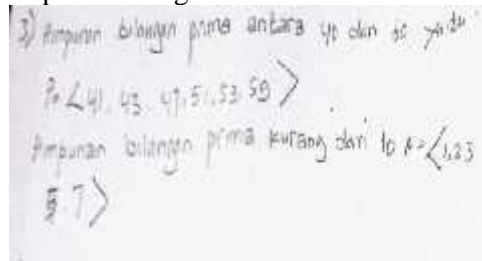 3) Himpunan bilangan prima antara 40 dan yaitu
P= <41, 43, 47, 51, 53, 59>
Himpunan bilangan prima kurang dari 10 A= <1,2,3
5, 7>